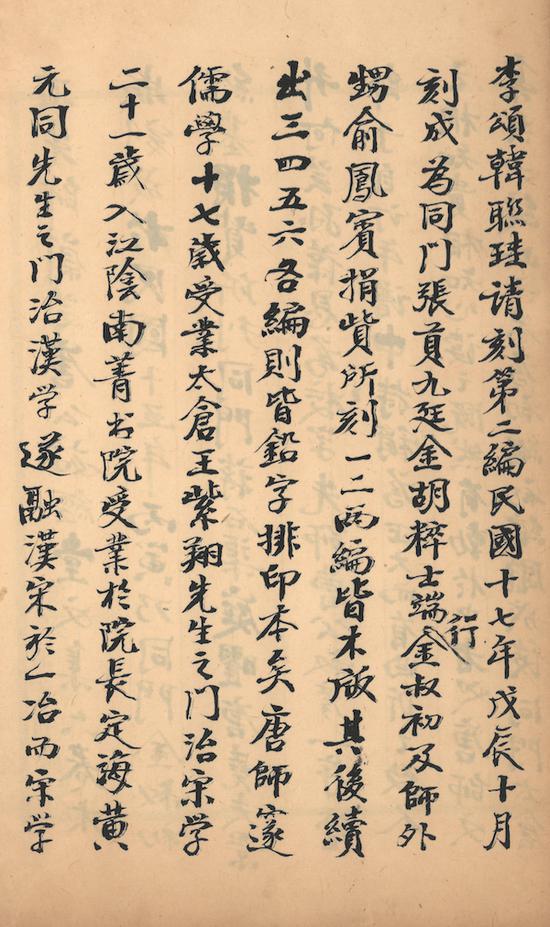 李頌韓聯珪請刻第二編民國十七年戊辰十月
刻成為同門張貢九廷金胡粹士端行金叔初及師外
甥俞鳳賓捐貲所刻一二兩編皆木版其後續
出三四五六各編則皆鉛字排印本矣唐師邃
儒學十七歲受業太倉王紫翔先生之門治宋学
二十一歲入江陰南菁书院受業於院長定海黄
元同先生之门治漢学遂融漢宋於一冶而宋学